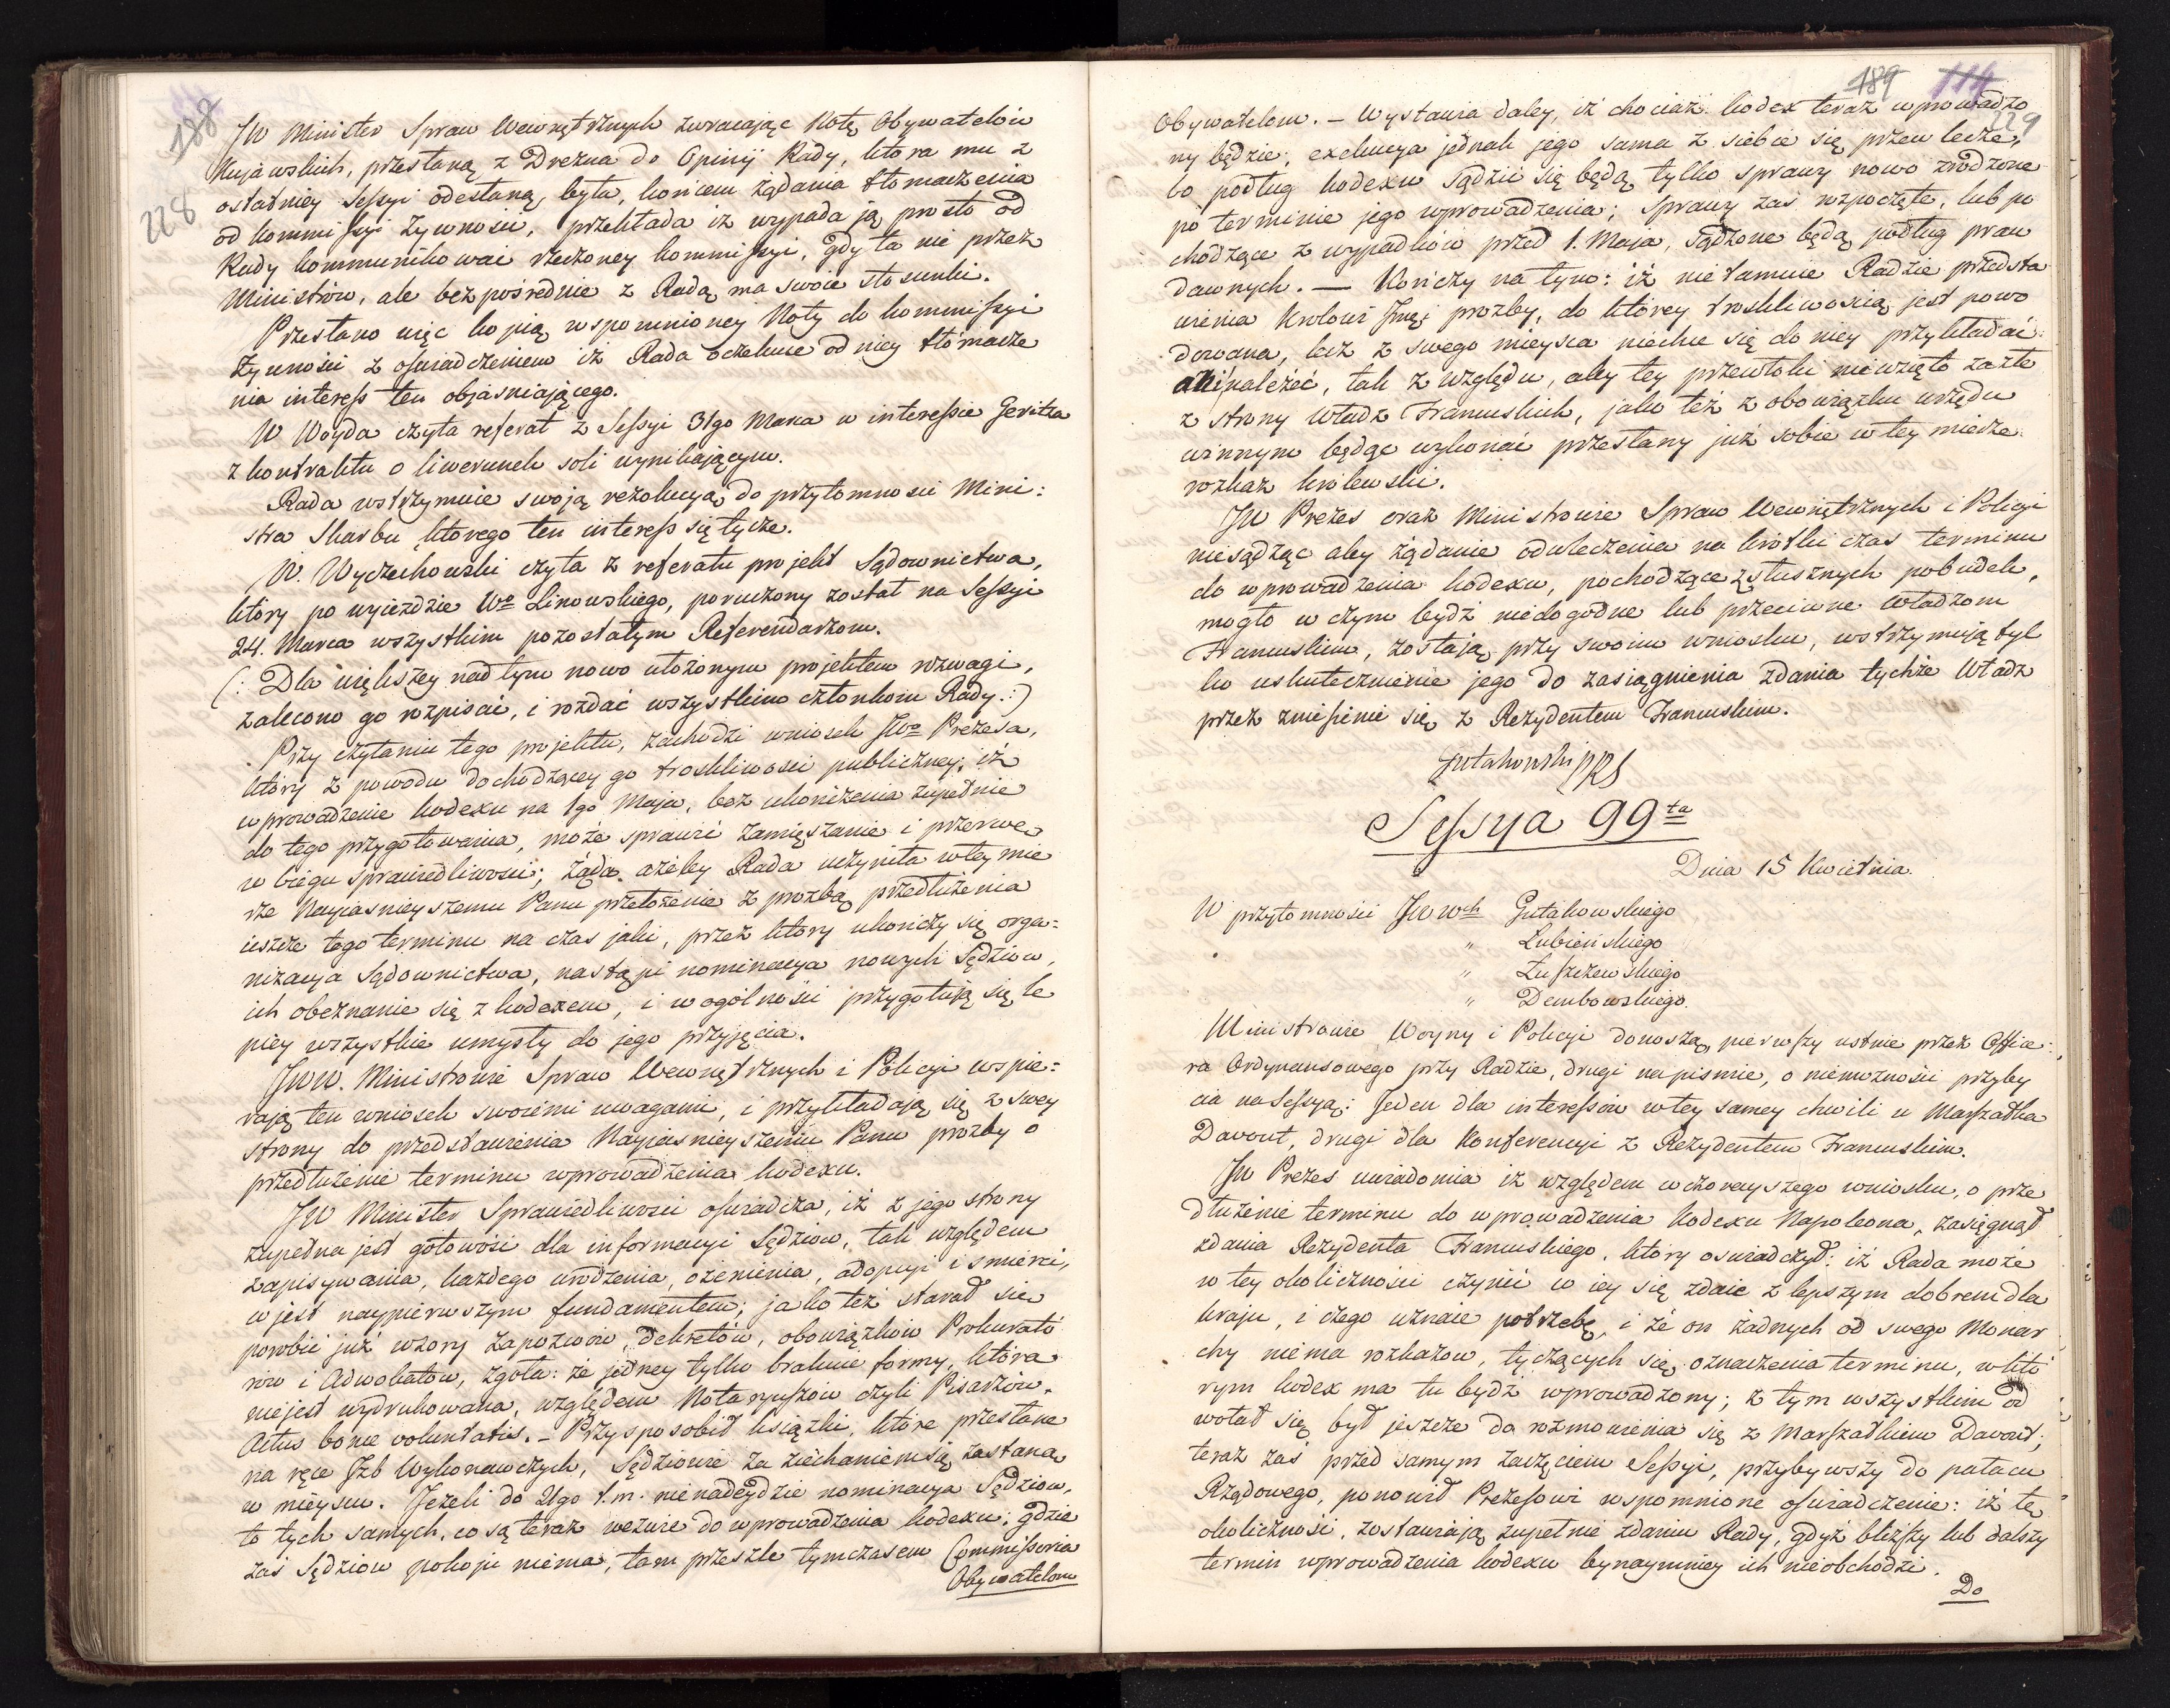 188
228
JW Minister Spraw Wewnętrznych zwracając Notę Obywatelów
Kujawskich, przesłaną z Drezna do Opinii Rady, ktora mu z
ostatniey Sessyi odesłaną była, końcem żądania tłomaczenia
od kommissyi żywności, przekłada iż wypada ją prosto od
Rady kommunikować rzeczoney kommissyi, gdy ta nie przez
Ministrów, ale bezpośrednie z Radą ma swoie stosunki.
Przesłano więc kopią wspomnioney Noty do kommissyi
żywności z oświadczeniem iż Rada oczekuie od niey tłómacze
nia interess ten objasniającego.
W Woyda czyta referat z Sessyi 31go Marca w interessie Geritza
z kontraktu o liwerunek soli wynikającym.
Rada wstrzymuie swoją rezolucyą do przytomności Mini:
stra Skarbu którego ten interess się tycze.
W. Wyczechowski czyta z referatu projekt Sądownictwa,
który po wyieździe Wo Linowskiego, poruczony został na Sessyi
24. Marca wszystkim pozostałym Referendarzom.
(: Dla większey nad tym nowo ułożonym projektem rozwagi,
zalecono go rozpisać, i rozdać wszystkim członkom Rady.:)
Przy czytaniu tego projektu, zachodzi wniosek JWo Prezesa,
który z powodu dochodzącey go troskliwości publiczney, iż
wprowadzenie kodexu na 1go Maja, bez ukończenia zupełnie
do tego przygotowania, może sprawić zamięszanie i przerwę
w biegu sprawiedliwości; żąda ażeby Rada uczyniła w tey mie
rze Nayiasnieyszemu Panu przełożenie z prozbą przedłużenia
ieszcze tego terminu na czas jaki, przez który ukończy się orga:
nizacya Sądownictwa, nastąpi nominacya nowych Sędziow,
ich obeznanie się z kodexem, i w ogólności przygotują się le
piey wszystkie umysły do jego przyjęcia.
JWW. Ministrowie Spraw Wewnętrznych i Policyi wspie:
rają ten wniosek swoiemi uwagami, i przykładają się z swey
strony do przedstawienia Nayiasnieyszemu Panu prozby o
przedłużenie terminu wprowadzenia kodexu.
JW Minister Sprawiedliwości oświadcza, iż z jego strony
zupełna jest gotowość dla informacyi Sędziow, tak względem
zapisywania, każdego urodzenia, ożenienia, adopcyi i smierci,
w jest naypierwszym fundamentem; jako też starał się
porobić już wzory zapozwow, dekretów, obowiązków Prokurato
row i Adwokatow, zgoła: że jedney tylko brakuie formy, która
niejest wydrukowana, względem Notaryuszow czyli Pisarzow.
Actus bonae voluntatis. - Przysposobił książki, które przesłane
na ręce Izb Wykonawczych, Sędziowie za ziechaniem się zastaną
w mieyscu. Jeżeli do 21go t.m. nienadeydzie nominacya Sędziow,
to tych samych, co są teraz wezwie do wprowadzenia kodexu; gdzie
zaś Sędziow pokoju niema, tam przeszle tymczasem Commissoria
Obywatelom
189 114
229
Obywatelom. - Wystawia daley, iż chociaż kodex teraz wprowadzo
ny będzie, exekucya jednak jego sama z siebie się przewlecze,
bo podług kodexu sądzić się będą tylko sprawy nowo zrodzone
po terminie jego wprowadzenia; sprawy zaś rozpoczęte, lub po
chodzące z wypadków przed 1. Maja, sądzone będą podług praw
dawnych. — Kończy na tym: iż nietamuie Radzie przedsta
wienia Krolowi Jmci prozby, do którey troskliwością jest powo
dowana, lecz z swego mieysca niechce się do niey przykładać
ani należeć, tak z względu, aby tey przewłoki niewzięto za złe
z strony władz Francuskich, jako też z obowiązku urzędu
winnym będąc wykonać przesłany już sobie w tey mierze
rozkaz krolewski.
JW Prezes oraz Ministrowie Spraw Wewnętrznych i Policyi
niesądząc aby żądanie odwleczenia na krótki czas terminu
do wprowadzenia kodexu, pochodzące z słusznych pobudek,
mogło w czym bydź niedogodne lub przeciwne władzom
Francuskim, zostają przy swoim wniosku, wstrzymują tyl
ko uskutecznienie jego do zasiągnienia zdania tychże Władz
przez zniesienie się z Rezydentem Francuskim.
Gutakowski PRS
Sessya 99ta
Dnia 15 Kwietnia.
W przytomności JWWch Gutakowskiego
" Łubieńskiego
" Łuszczewskiego
" Dembowskiego.
Ministrowie Woyny i Policyi donoszą, pierwszy ustnie przez Office:
ra Ordynansowego przy Radzie, drugi napismie, o niemożności przyby
cia na Sessyą: Jeden dla interessow w tey samey chwili u Marszałka
Davout, drugi dla Konferencyi z Rezydentem Francuskim.
JW Prezes uwiadomia iż względem wczorayszego wniosku, o prze
dłużenie terminu do wprowadzenia Kodexu Napoleona, zasięgnął
zdania Rezydenta Francuskiego, który oświadczył: iż Rada może
w tey okoliczności czynić co iey się zdaie z lepszym dobrem dla
kraju, i czego uznaie potrzebę, i że on żadnych od swego Monar
chy niema rozkazow, tyczących się oznaczenia terminu, w któ
rym kodex ma tu bydź wprowadzony; z tym wszystkim od
wołał się był jeszcze do rozmowienia się z Marszałkiem Davout,
teraz zaś przed samym zaczęciem Sessyi, przybywszy do pałacu
Rządowego, ponowił Prezesowi wspomnione oświadczenie: iż tę
okoliczność, zostawiają zupełnie zdaniu Rady, gdyż bliższy lub dalszy
termin wprowadzenia kodexu bynaymniey ich nieobchodzi.
Do